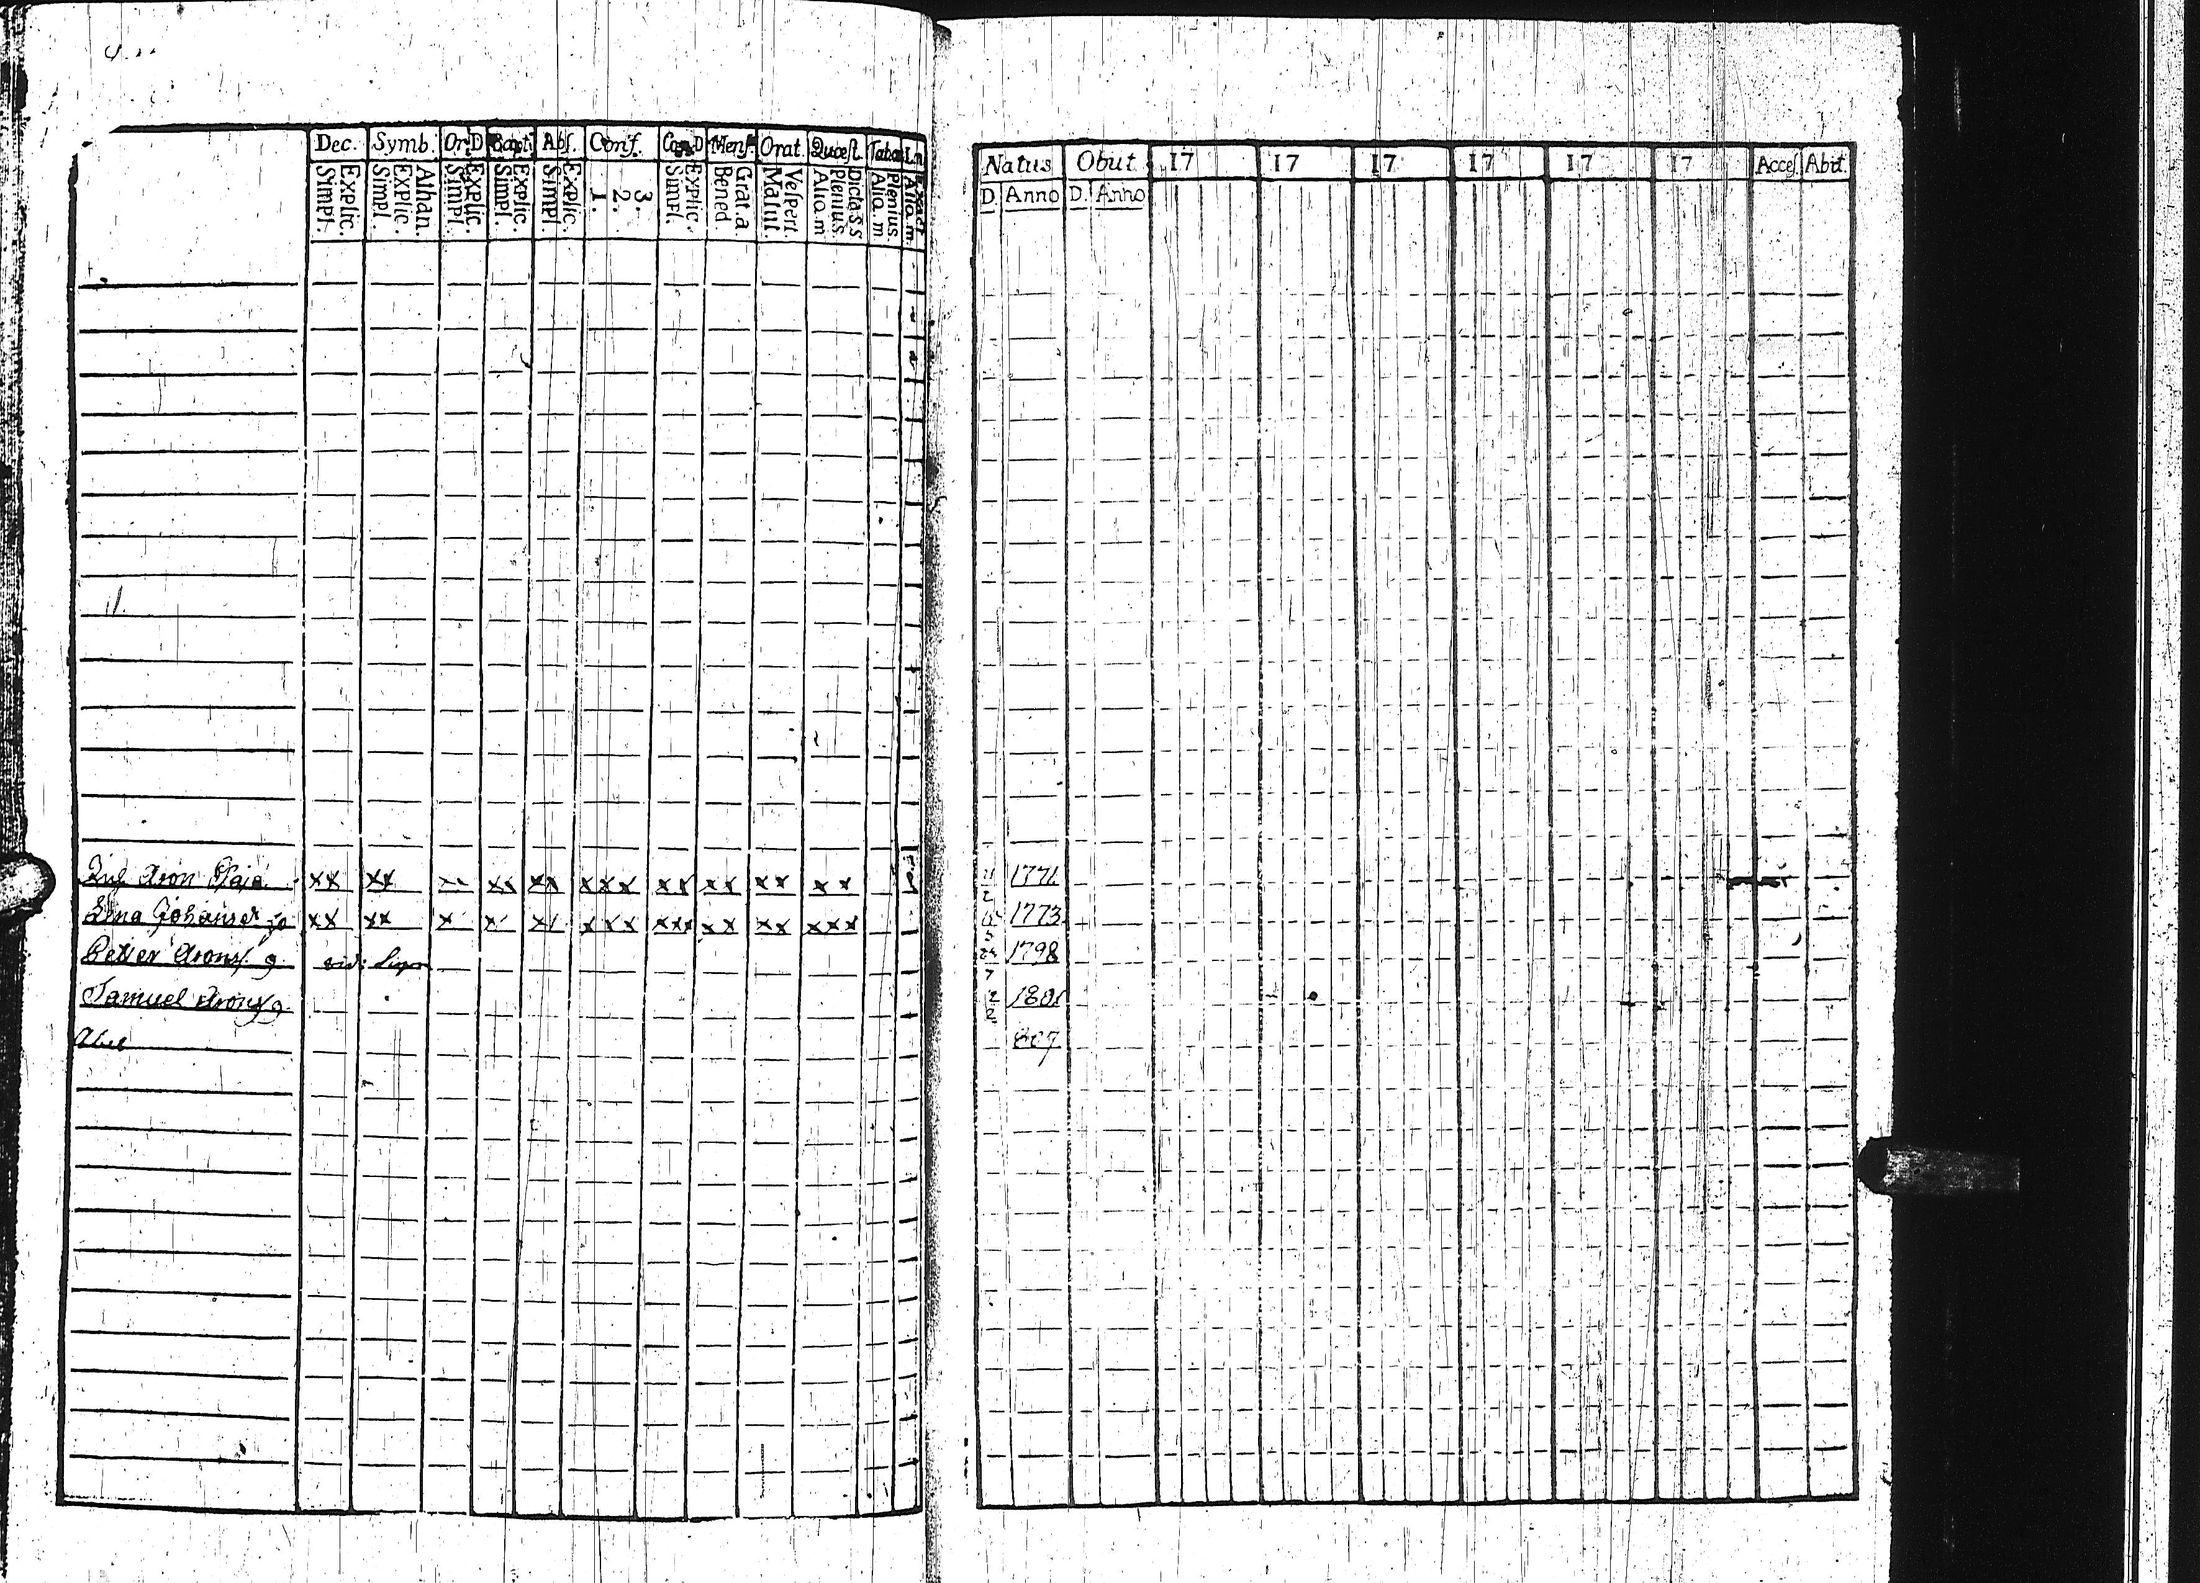 Dec. Symb. Or. D Bapt. Abſ. Conf. Cœn. D Menſ. Orat. Quœſt. Taba
Simpl. Explic. Simpl. Explic. Athan. Simpl. Explic. Simpl. Explic. Simpl. Explic. 1. 2. 3. Simpl. Explic. Bened. Grat. a Matut. Veſpert. Alio. m Plenius. Dicta. S. S Alio. m Plenius. Alio. m. Exact
Aron xx xx xx xx xx xxx xx xx xx xx
Lena xx xx x x x xxx xxx xx xx xxx
Petter Arons.
Samuel Arons
Abel
Natus Obiit. 17 17 17 17 17 17 Acceſ. Abit.
D. Anno D. Anno
1771.
1773.
24 1798
2 1801
807